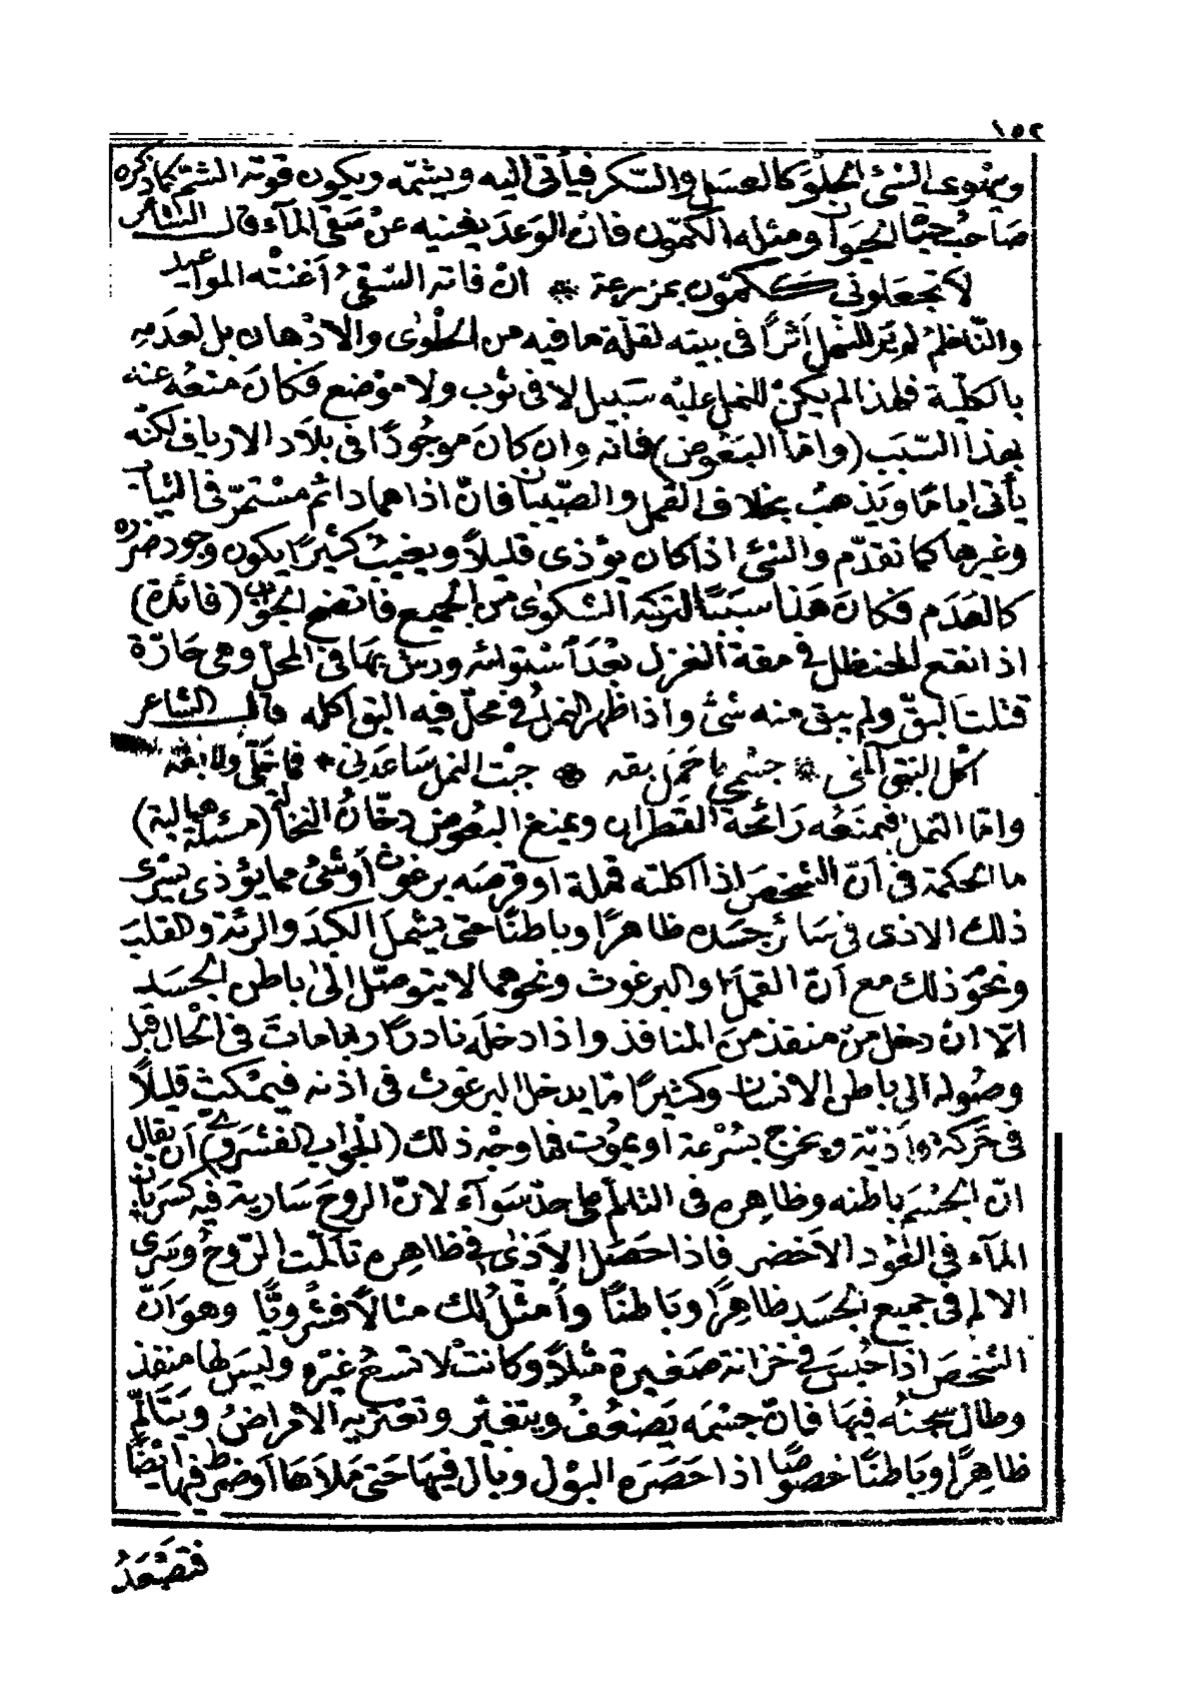 ١٥٢
ويهوى الشئ الحلو كالعسل والسكر فيأتى اليه ويشمه ويكون قوته الشم كما ذكره
صاحب حياة الحيوان ومثله الكمون فان الوعد يغنيه عن سقى المآء قال الشاعر
لا تجعلونى ككمّون بمزرعة * ان فاته السّقىُ أغنته المواعيد
والنّاظم لم يَر للنمل أثرًا فى بيته لقلّة ما فيه من الحلوى والادهان بل لعدمه
بالكليّة فلهذا لم يكن للنمل عليه سبيل لا فى ثوب ولا موضع فكان منعُه عنه
بهذا السّبب (وامّا البعوض) فانه وان كان موجُودًا فى بلاد الارياف لكنّه
يأتى اياما ويذهب بخلاف القمل والصّيبان فانّ اذاهما دائم مستمرّ فى الثياب
وغيرها كما تقدّم والشئ اذا كان يؤذى قليلاً ويغيب كثيرًا يكون وجود ضرره
كالعَدَم فكان هَذا سببًا لتركه الشكوى من الجميع فاتضح الجواب (فائدة)
اذا نقع الحنظل فى مقة الغزل بعد استوائه ورش بها فى المحلّ وهى حارّة
قتلت البقّ ولم يبق منه شئ واذا ظهر النمل فى محلّ فيه البق اكله قال الشاعر
اكل البق المنى * جسمى يا حمل بقه * جبْت النمل ساعدنى * فما تملّى ولا بقه
وامّا النمل فيمنعُه رَائحة القَطران ويمنع البعوض دخّان النخالة (مسئلة هبالية)
ما الحكمة فى انّ الشخصَ اذا اكلته قملة او قرصَه برغوث أو شئ مما يؤذى يسرى
ذلك الاذى فى سَائر جسَده ظاهرًا وباطنًا حتى يشمل الكبد والرئة والقلب
ونحو ذلك مع أنّ القمل والبرغوث ونحوهما لا يتوصّل الى باطن الجسَد
الّا ان دخل من منفذ من المنافذ واذا دخلَه نادرًا ربما مات فى الحال قبل
وصُوله الى باطن الانسان وكثيرًا مّا يدخل البرغوث فى اذنه فيمكث قليلًا
فى حَركة وأذيّة ويخرج بسُرْعة أو يموت فما وجْه ذلك (الجواب الفشروى) أن يقال
انّ الجسْم باطنه وظاهره فى التألم على حدّ سَوآء لانّ الروحَ سَارية فيه كسَرَيان
المآء فى العُود الأخضر فاذا حصَل الأذى فى ظاهره تألّمت الرّوحُ وسَرى
الالم فى جميع الجسَد ظاهرًا وباطنًا وأمثلُ لك مثالًا فشْرويًّا وهو انّ
الشخصَ اذا حُبسَ فى خزانة صَغيرة مثلًا وكانتْ لا تسعُ غيْره وليسَ لها منفذ
وطال سجنُه فيها فانّ جسْمَه يَضعُفُ ويتغيّر وتعْتريه الامراضُ ويَتألّم
ظاهِرًا وبَاطنًا خصوصًا اذا حَصَره البوْل وبال فيهَا حَتى مَلأهَا أو ضرط فيها ايضًا
فتصْعَدُ